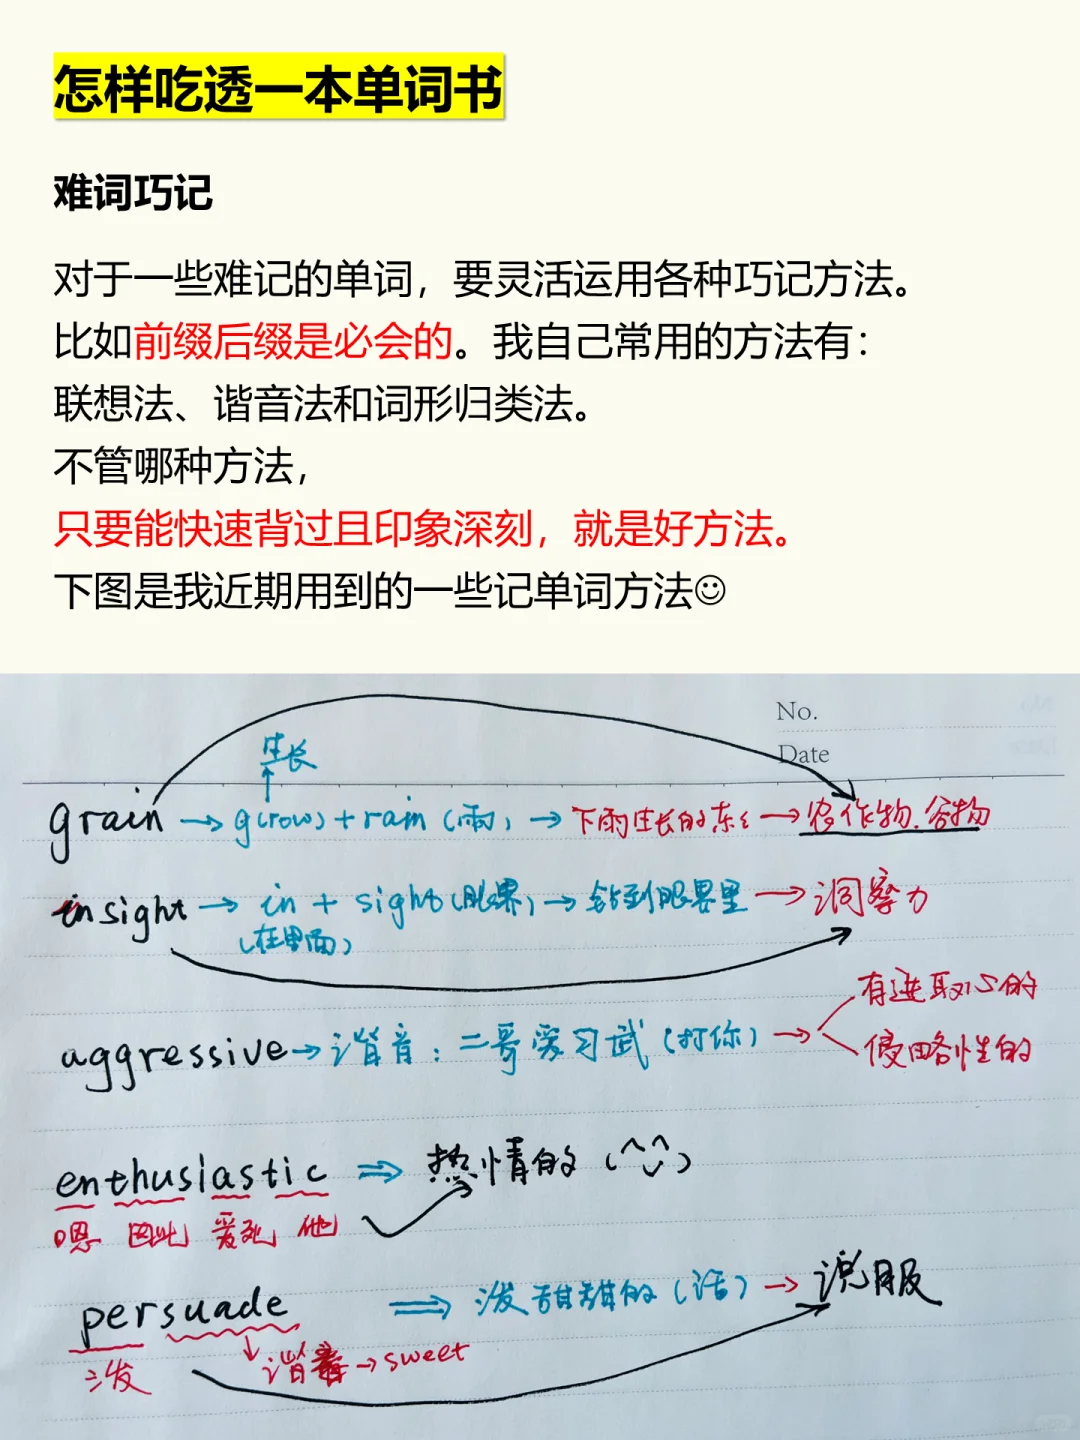 怎样吃透一本单词书
难词巧记
对于一些难记的单词，要灵活运用各种巧记方法。
比如前缀后缀是必会的。我自己常用的方法有：
联想法、谐音法和词形归类法。
不管哪种方法，
只要能快速背过且印象深刻，就是好方法。
下图是我近期用到的一些记单词方法☺
No.
Date
生长
grain → g(row)+rain(雨) → 下雨生长的东 → 农作物.谷物
insight → in + sight(眼界) → 钻到眼界里 → 洞察力
(在里面)
有进取心的
aggressive → 谐音：二哥爱习武(打你) →
侵略性的
enthusiastic ⇒ 热情的(^◡^)
嗯 因此 爱死 他
persuade ⇒ 泼甜甜的(话) → 说服
泼
谐音 → sweet